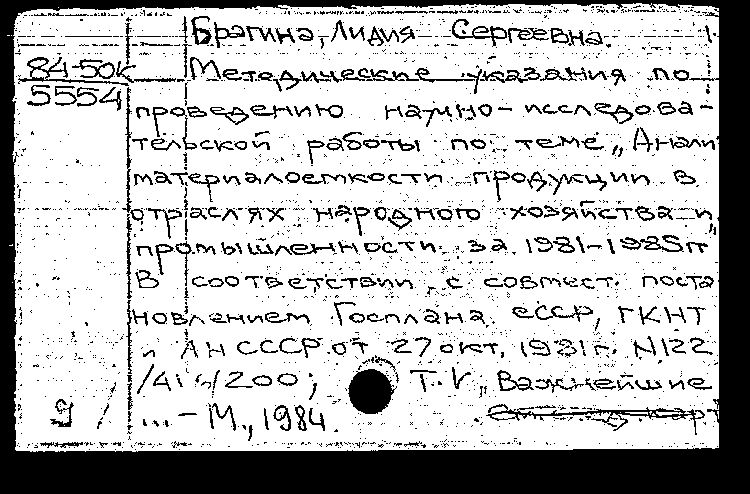 Брагина, Лидия Сергеевна.
84-50к
Методические указания по
5554
проведению научно-исследова-
тельской работы по теме „Анали
материалоемкости продукции в
отраслях народного хозяйства и
промышленности за 1981-1985гг"
в соответствии с совмест. поста
новлением Госплана СССР, ГКНТ
и АН СССР от 27 окт. 1981г. N122
/200; Т.V „Важнейшие
9
... - М., 1984.